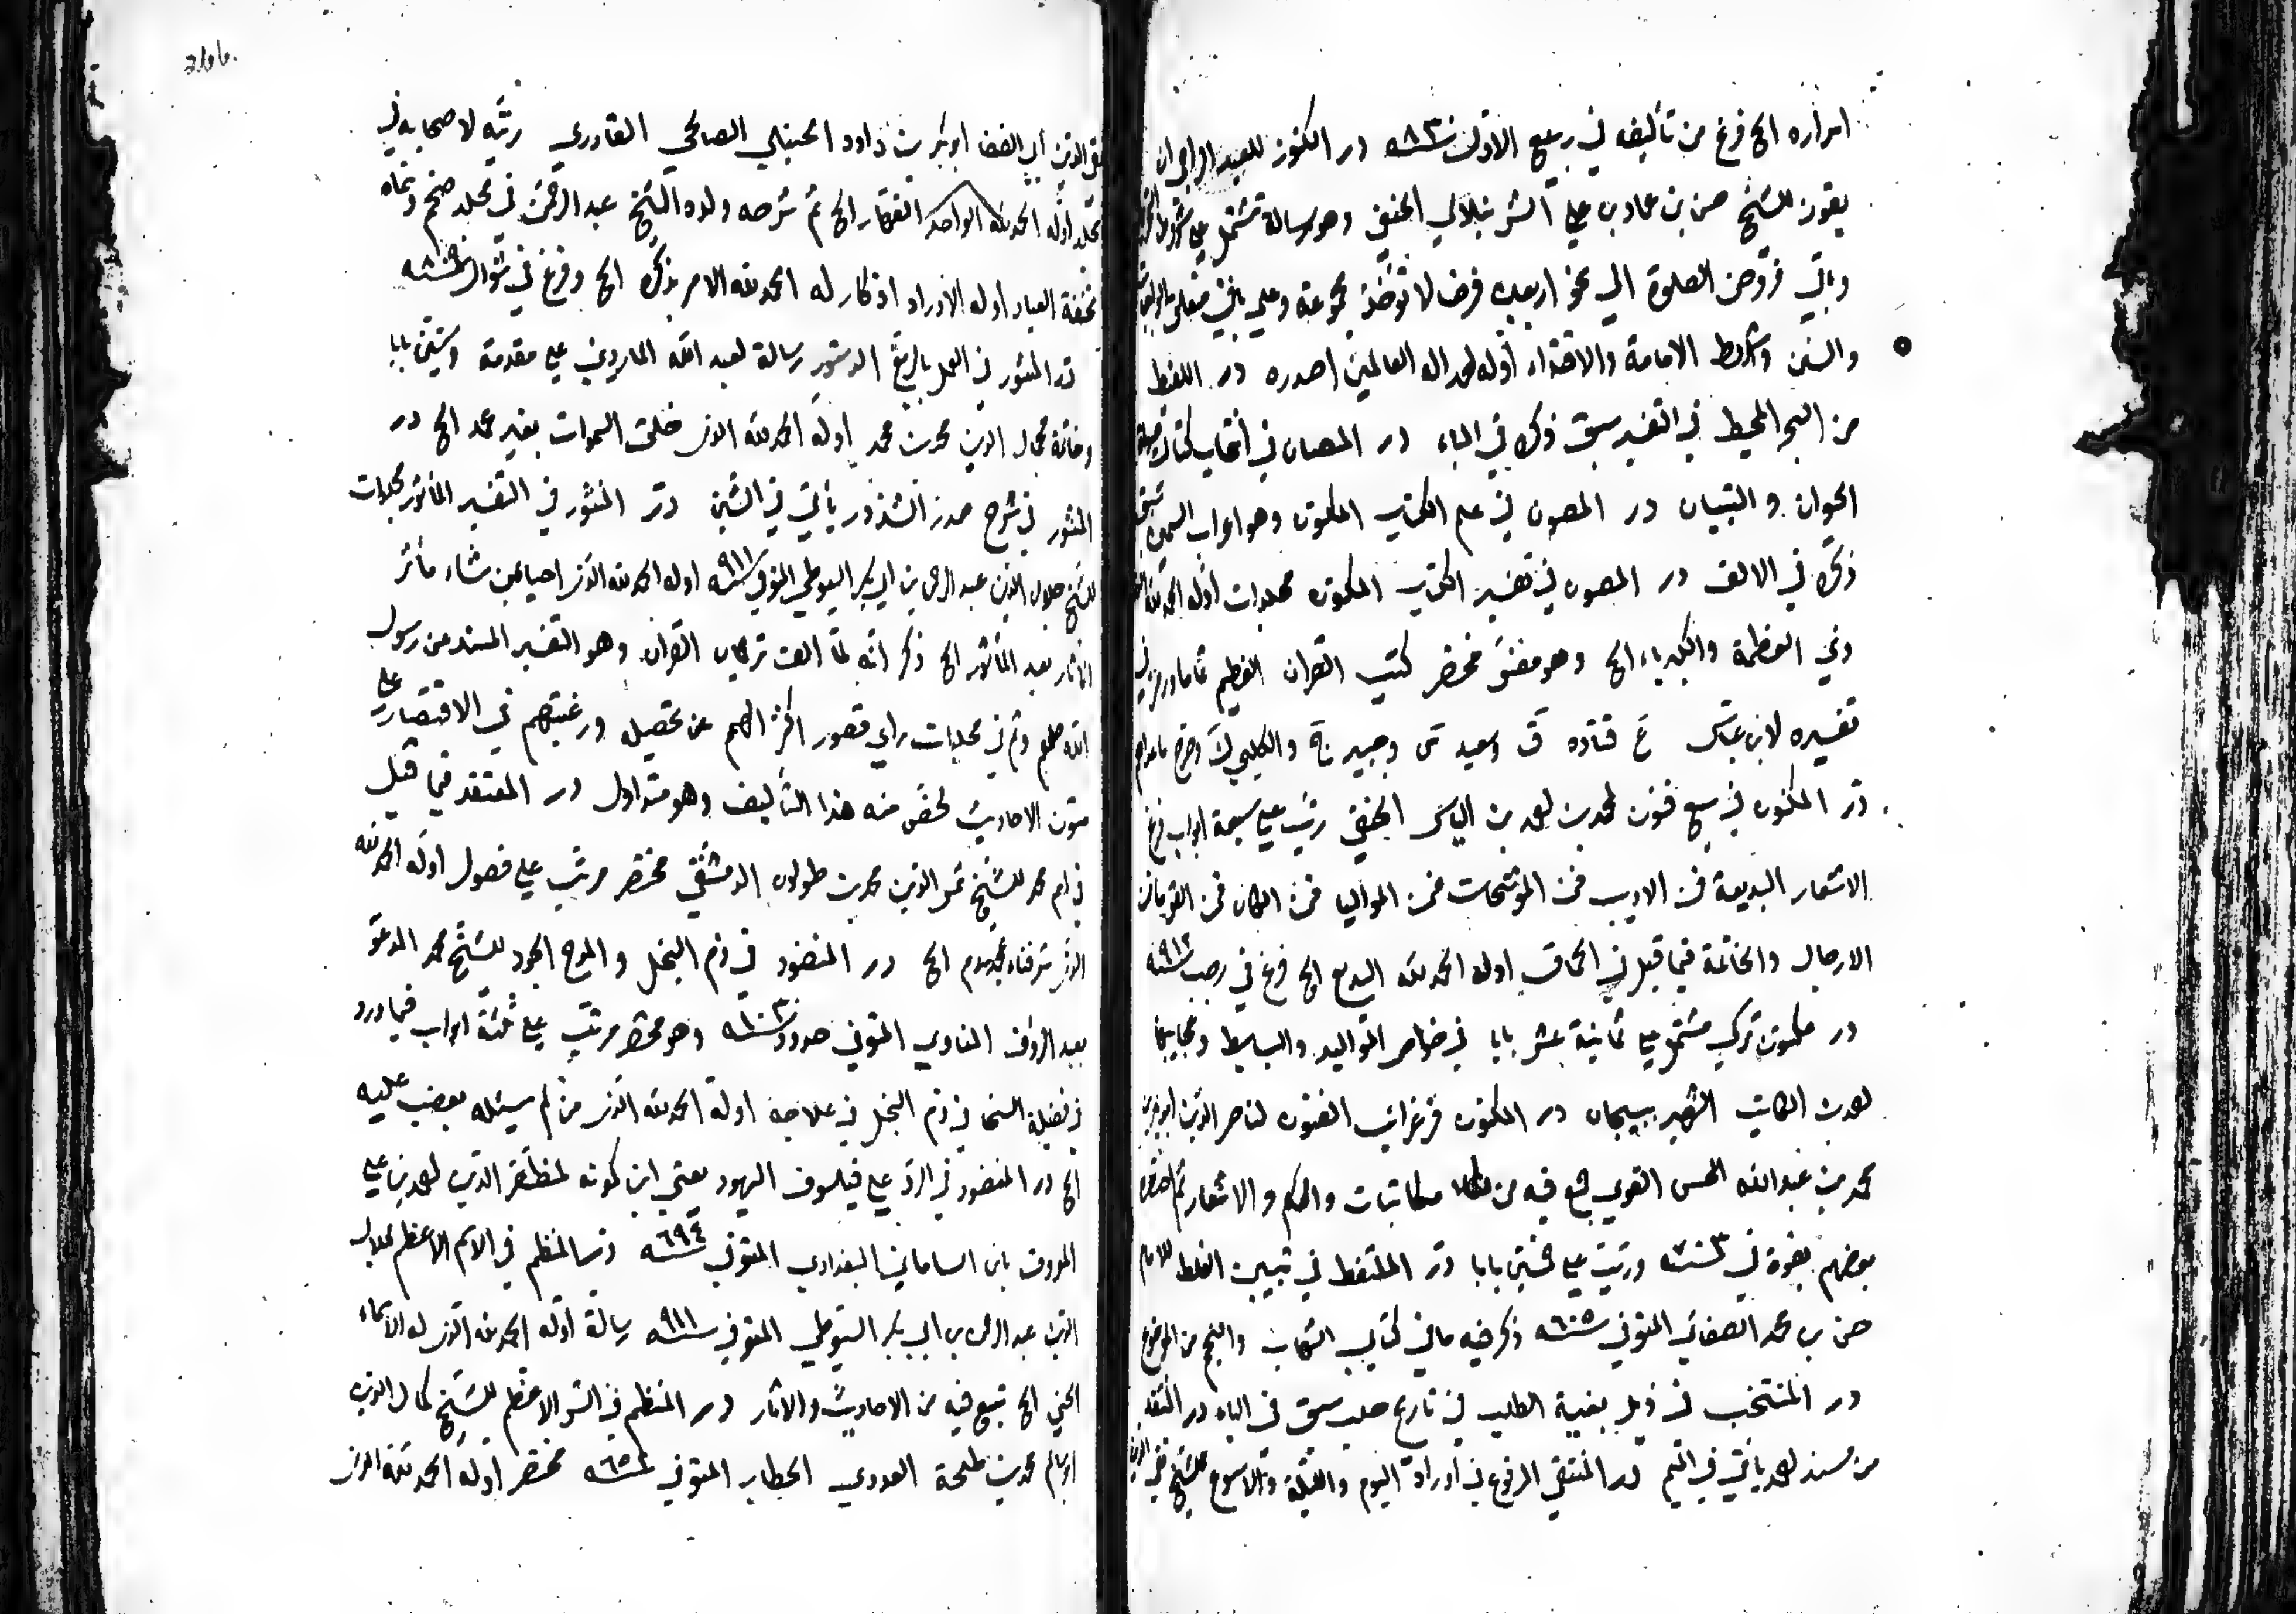 اسراره الخ فرغ من تأليفه في ربيع الاول سنة در الكنوز للعبد الراجي ان
يفوز للشيخ حسن بن عمار بن علي الشرنبلالي الحنفي وهو رسالة تشتمل على شروط
وباقي فروض الصلوة الى نحو اربعين فرضا لا توجد مجموعة وعلى باقي متعلق الواجبات
والسنن وشرايط الامامة والاقتداء اوله لحمد اله العالمين اصدره در اللقيط
من البحر المحيط في التفسير سبق ذكره في الباء در المصان في انتخاب كتاب
الحيوان و التبيان در المصون في علم الكتاب المكنون وهو اعراب السمين سبق
ذكره في الالف در المصون في تفسير الكتاب المكنون مجلدات اوله الحمد لله
ذي العظمة والكبرياء الخ وهو مختصر كتب القران العظيم تماما ورمز في
تفسيره لابن عباس ع قتاده ق وسعيد س وجبير ج والكلبي ك
در المكنون في سبع فنون لمحمد بن احمد بن الياس الحنفي رتب على سبعة ابواب فن
الاشعار البديعة فن الادب فن الموشحات فن المواليا فن الكان فن القومان فن
الازجال والخاتمة فيما قيل في الحماق اوله الحمد لله البديع الخ فرغ في رجب سنة ٩١٢
در مكنون تركي مشتمل على ثمانية عشر بابا في خواص المواليد والبسايط وعجايبها
لاحمد بن الكاتب الشهير ببيجان در المكنون في غرائب الفنون لناصر الدين
محمد بن عبد الله الحسن القوي جمع فيه من مكاتبات والحكم والاشعار ثم
بعضهم بقوة في سنة ورتب على خمسين بابا در الملتقط في تبيين الغلط للامام
حسن بن محمد الصغاني المتوفى سنة ٦٥٠ ذكر فيه ما في كتاب الشهاب والنجم من الموضوع
در المنتخب في ذيل بغية الطلب في تاريخ حلب سبق في الباء در النقد
من مسند احمد يأتي في الميم در المنتقى المرفوع في اوراد اليوم والليلة والاسبوع للشيخ تقي الدين
تقي الدين ابي الصفا ابو بكر بن داود الحنبلي الصالحي القادري رتبه لاصحابه في
مجلد اوله الحمد لله الواحد القهار الخ ثم شرحه ولده الشيخ عبد الرحمن في مجلد ضخم وسماه
تحفة العباد اوله الاوراد اذكار له الحمد لله الامر بذكره الخ وفرغ في شوال سنة
در المنثور في العمل بالربع الدستور رسالة لعبد الله المارديني على مقدمة وستين بابا
وخاتمة لجمال الدين محمد بن محمد اوله الحمد لله الذي خلق السموات بغير عمد الخ در
المنثور في شرح صدر الشذور يأتي في الشين در المنثور في التفسير المأثور مجلدات
للشيخ جلال الدين عبد الرحمن بن ابي بكر السيوطي المتوفى سنة ٩١١ اوله الحمد لله الذي احيا بمن شاء مأثر
الاثار بعد الدثور الخ ذكر انه لما الف ترجمان القران وهو التفسير المسند عن رسول
الله صلعم وتم في مجلدات راى قصور اكثر الهمم عن تحصيله ورغبتهم في الاقتصار على
متون الاحاديث لخص منه هذا التأليف وهو متداول در المعتقد فيما قيل
للشيخ شمس الدين محمد بن طولون الدمشقي مختصر مرتب على فصول اوله الحمد لله
الذي شرفنا بمحمد الخ در المنضود في ذم البخل والمدح الجود للشيخ محمد المدعو
بعبد الرؤف المناوي المتوفى حدود سنة وهو مختصر مرتب على ثلثة ابواب فيما ورد
في فضيلة السخا في ذم البخل في علاجه اوله الحمد لله الذي من لم يسئله يغضب عليه
الخ در المنضود في الرد على فيلسوف اليهود يعني ابن كمونه لمظفر الدين احمد بن علي
المعروف بابن الساعاتي البغدادي المتوفى سنة ٦٩٤ در المنظم في الاسم الاعظم لجلال
الدين عبد الرحمن بن ابي بكر السيوطي المتوفى سنة ٩١١ رسالة اوله الحمد لله الذي له الاسماء
الحسنى الخ تتبع فيه من الاحاديث والاثار در المنظم في السر الاعظم للشيخ كمال الدين
ابو سالم محمد بن طلحة العدوي الحطاب المتوفى سنة ٦٥٢ مختصر اوله الحمد لله الذي